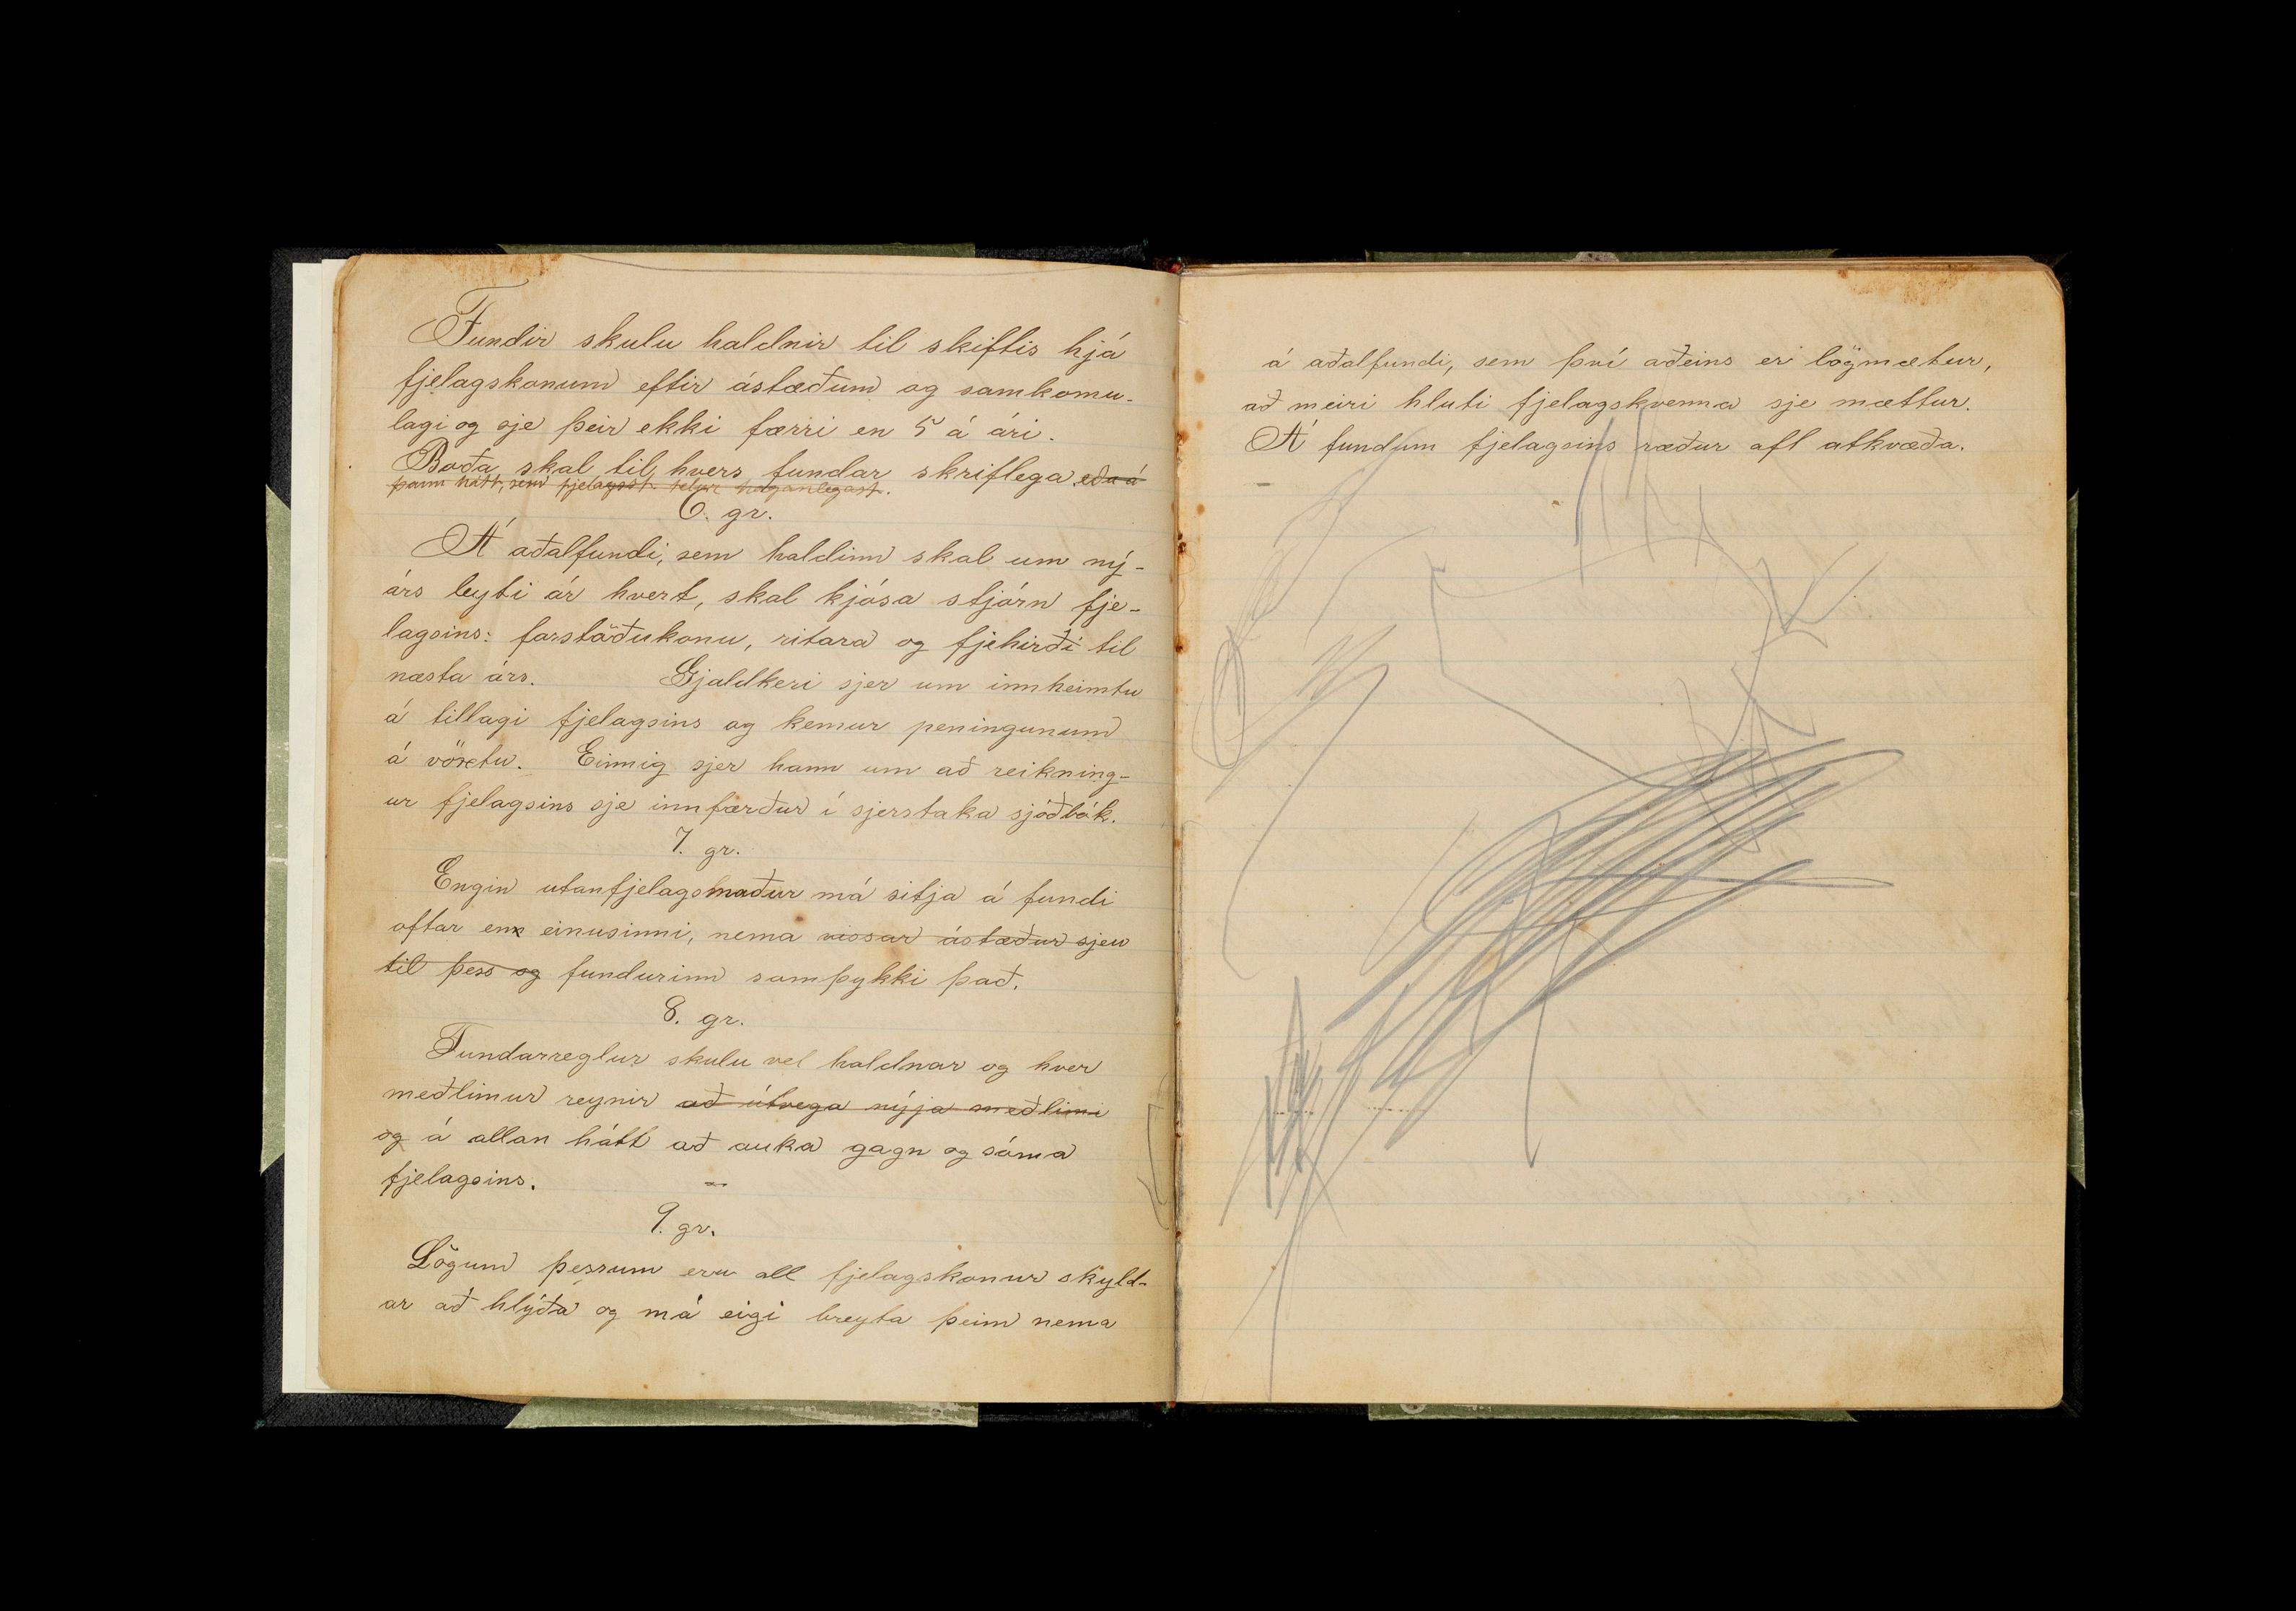 Fundir skulu haldnir til skiftis hjá
fjelagskonum eftir ástæðum og samkomu-
lagi og sje þeir ekki færri en 5 á ári.
Boða skal til hvers fundar skriflega eða á
þann hátt, sem fjelagsst. telur haganlegast.
6. gr.
Á aðalfundi, sem haldinn skal um ný-
árs leyti ár hvert, skal kjósa stjórn fje-
lagsins: forstöðukonu, ritara og fjehirði til
næsta árs. Gjaldkeri sjer um innheimtu
á tillagi fjelagsins og kemur peningunum
á vöxtu. Einnig sjer hann um að reikning-
ur fjelagsins sje innfærður í sjerstaka sjóðbók.
7. gr.
Engin utanfjelagsmaður má sitja á fundi
oftar en einusinni, nema vissar ástæður sjeu
til þess og fundurinn samþykki það.
8. gr.
Fundarreglur skulu vel haldnar og hver
meðlimur reynir að útvega nýja meðlimi
og á allan hátt að auka gagn og sóma
fjelagsins.
9. gr.
Lögum þessum eru all fjelagskonur skyld-
ar að hlýða og má eigi breyta þeim nema
á aðalfundi, sem því aðeins er lögmætur,
að meiri hluti fjelagskvenna sje mættur.
Á fundum fjelagsins ræður afl atkvæða.